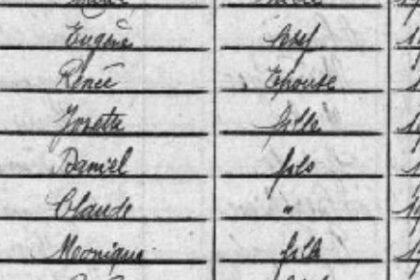 Eugène chef
Renée Epouse
Josette fille
Daniel fils
Claude "
Monique fille